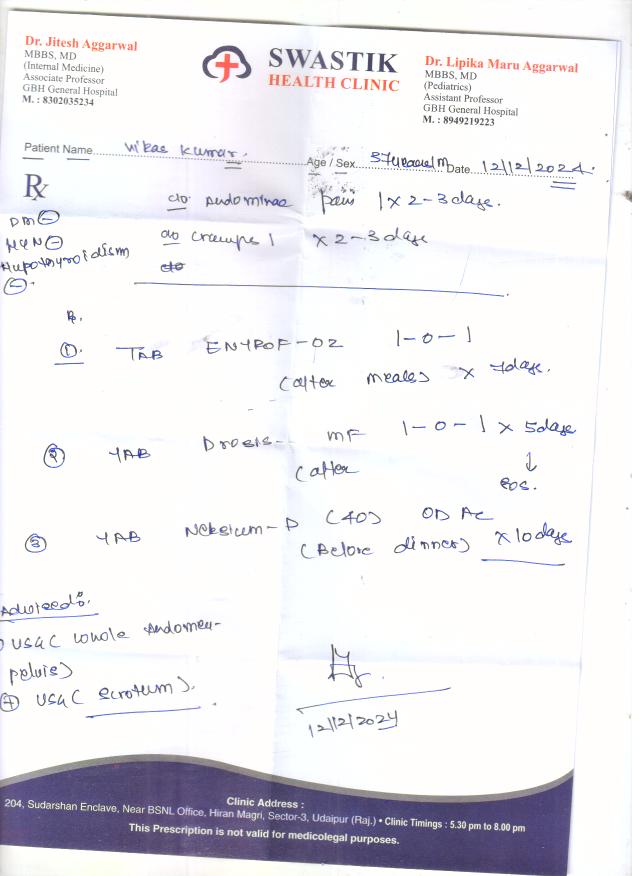 Dr. Jitesh Aggarwal
MBBS, MD
(Internal Medicine)
Associate Professor
GBH General Hospital
M. : 8302035234
SWASTIK
HEALTH CLINIC
Dr. Lipika Maru Aggarwal
MBBS, MD
(Pediatrics)
Assistant Professor
GBH General Hospital
M. : 8949219223
Patient Name Vikas Kumar. Age / Sex 37 /M Date 12/12/2024.
Rx
c/o Abdominal pain | x 2-3 days.
c/o cramps | x 2-3 days
c/o
DM ⊖
HTN ⊖
Hypothyroidism
⊖.
Rx.
① TAB ENTROF-OZ 1-0-1
(after meals) x 7 days.
② TAB Drotis- MF 1-0-1 x 5 days
(after ↓
SOS.
③ TAB Neksium-D (40) OD AC
(Before dinner) x 10 days
Advised:
USG ( whole Abdomen-
pelvis)
+ USG ( scrotum).
12/12/2024
Clinic Address :
204, Sudarshan Enclave, Near BSNL Office, Hiran Magri, Sector-3, Udaipur (Raj.) • Clinic Timings : 5.30 pm to 8.00 pm
This Prescription is not valid for medicolegal purposes.